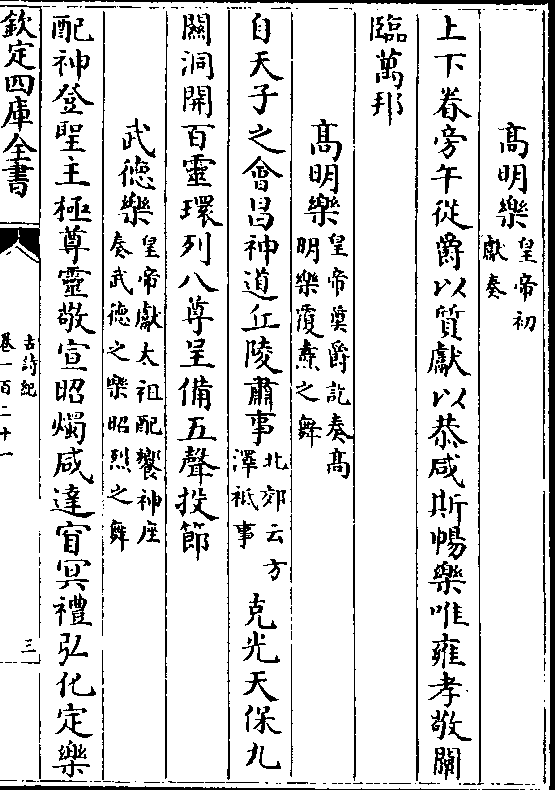 高明樂皇帝初
獻奏
上下眷旁午從爵以質獻以恭咸斯暢樂唯雍孝敬闡
臨萬邦
高明樂皇帝奠爵訖奏髙
明樂覆燾之舞
自天子之會昌神道丘陵肅事北郊云方
澤祇事
克光天保九
關洞開百靈環列八尊呈備五聲投節
武德樂皇帝獻太祖配饗神座
奏武德之樂昭烈之舞
配神登聖主極尊靈敬宣昭燭咸達窅冥禮弘化定樂
欽定四庫全書
古詩紀
卷一百二十一
三